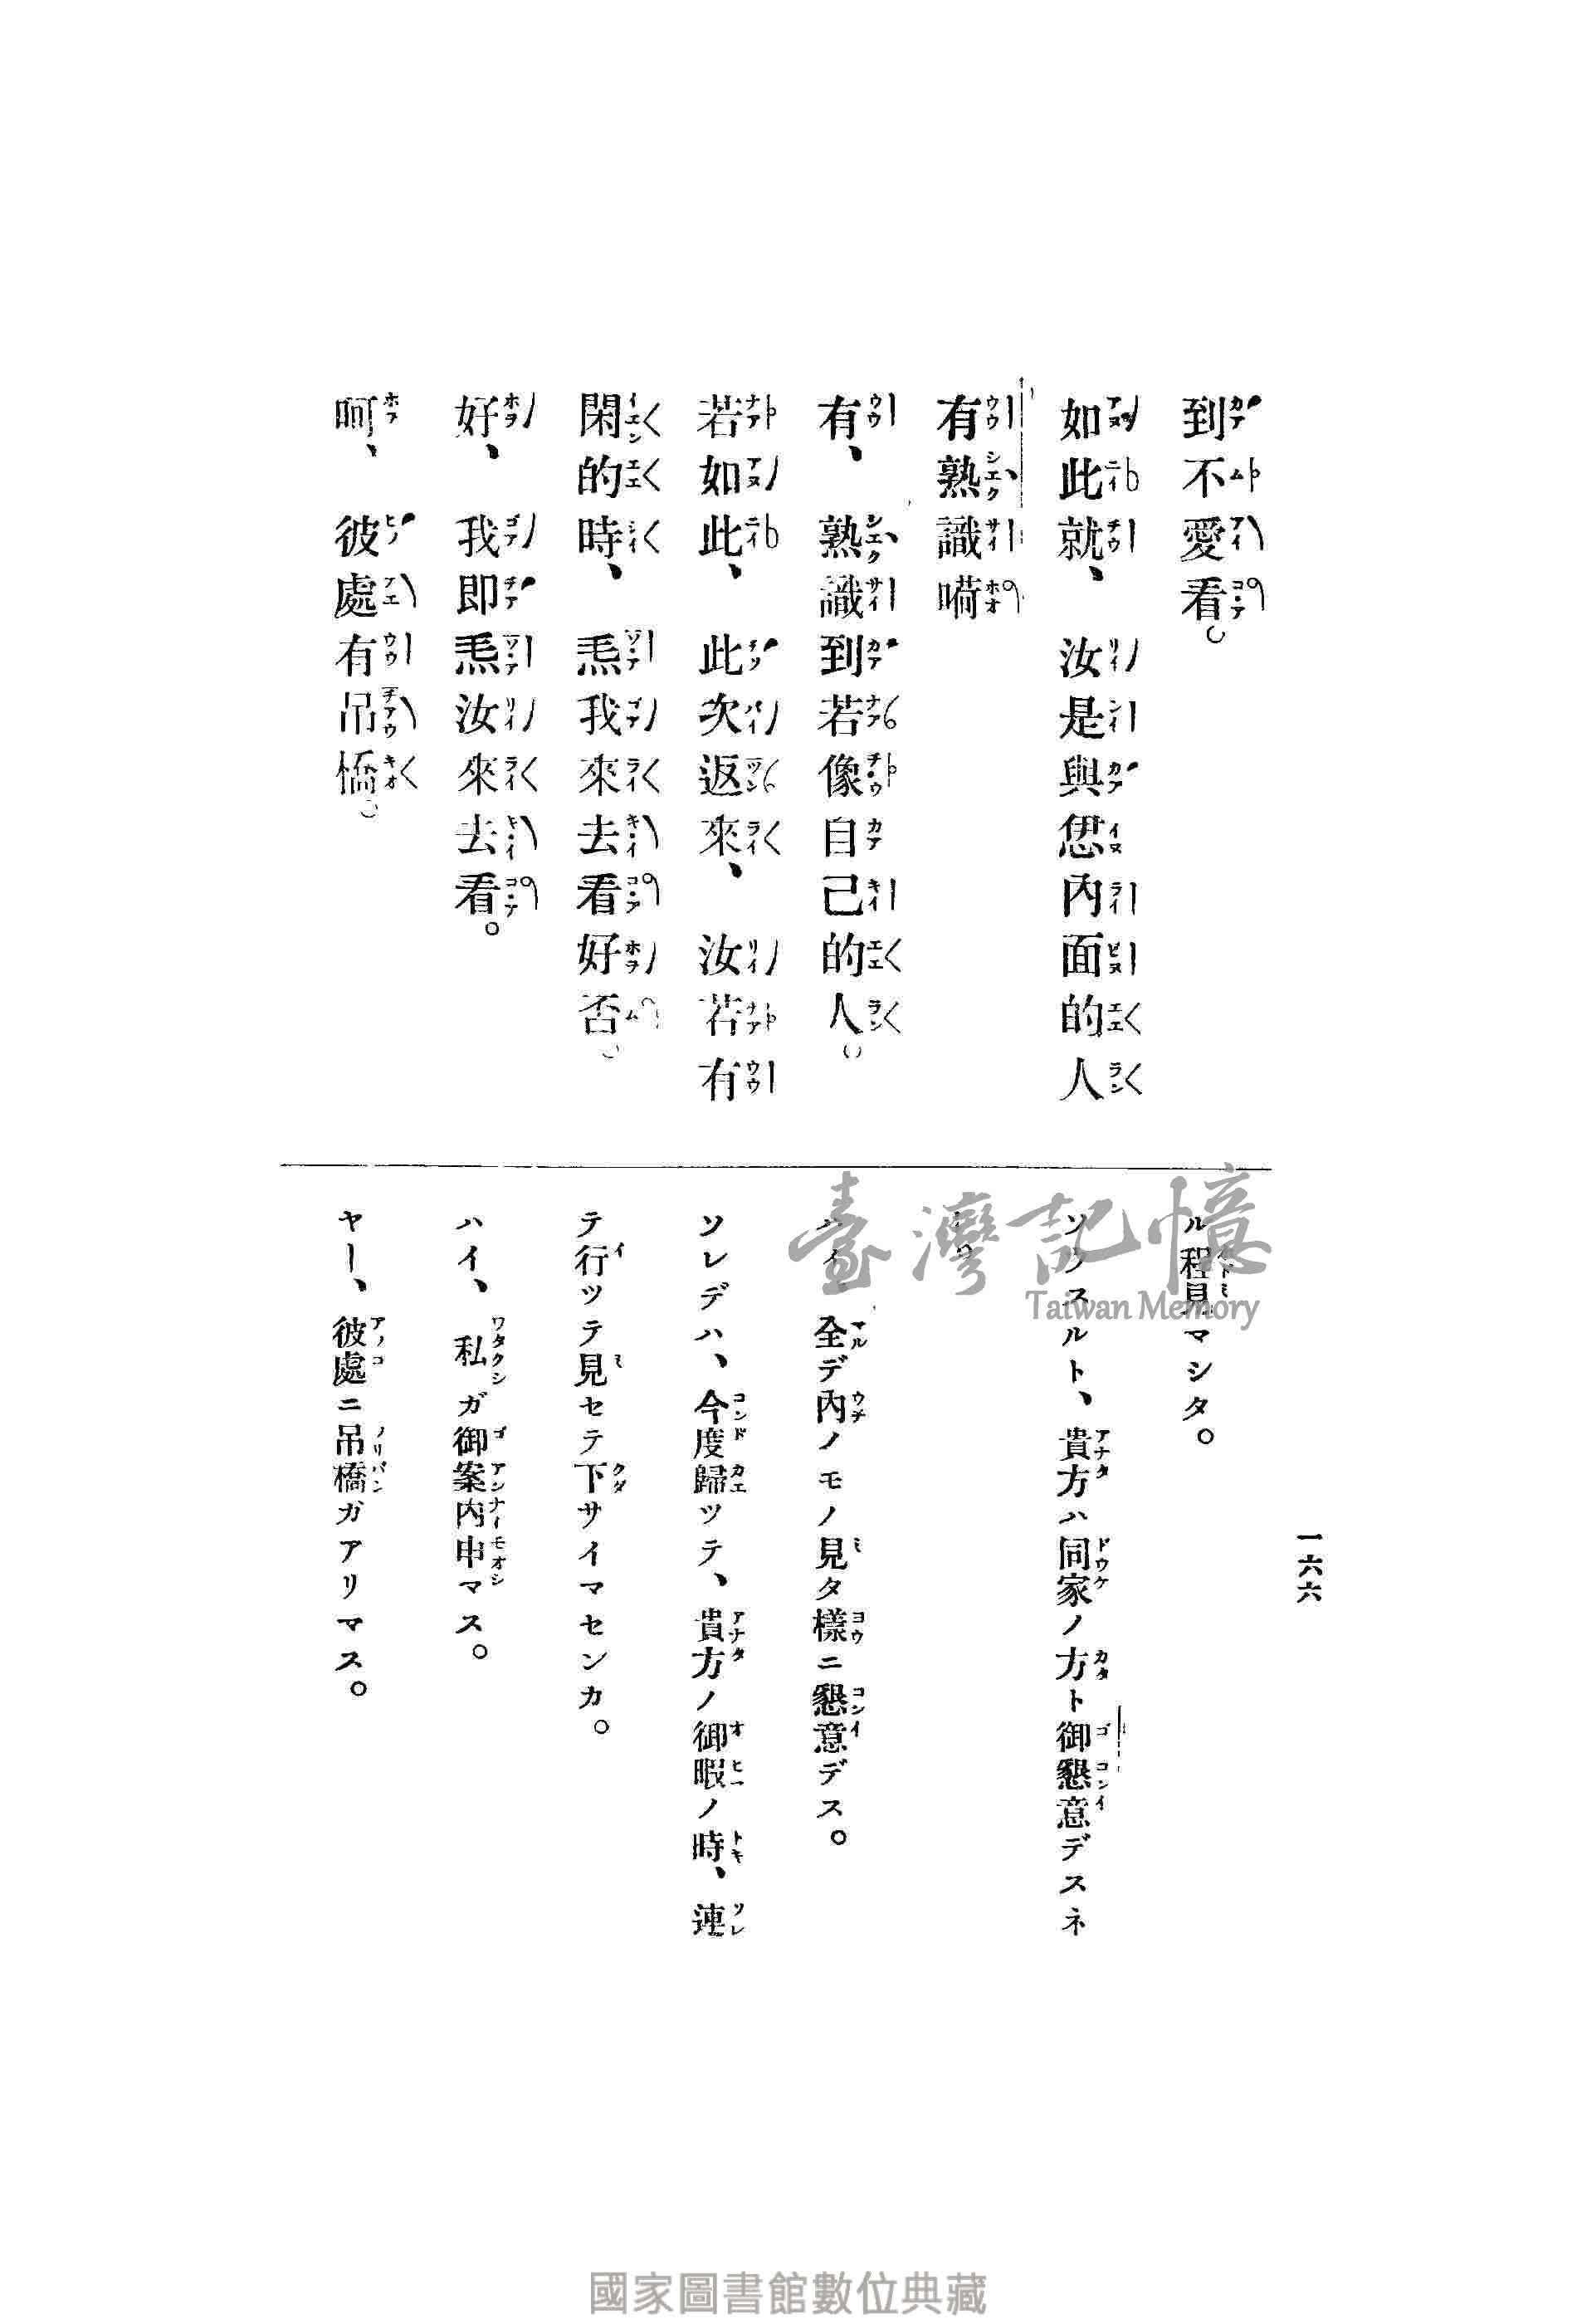 一六六
到不愛看。
如此就、汝是與恁內面的人
有熟識嗬
有、熟識到若像自己的人。
若如此、此次返來、汝若有
閑的時、焄我來去看好否。
好、我即焄汝來去看。
呵、彼處有吊橋。
ル程見マシタ。
ソウスルト、貴方ハ同家ノ方ト御懇意デスネ
ハイ 全デ內ノモノ見タ樣ニ懇意デス。
ソレデハ、今度歸ツテ、貴方ノ御暇ノ時、連
テ行ツテ見セテ下サイマセンカ。
ハイ、私ガ御案内申マス。
ヤー、彼處ニ吊橋ガアリマス。
臺灣記憶
Taiwan Memory
國家圖書館數位典藏